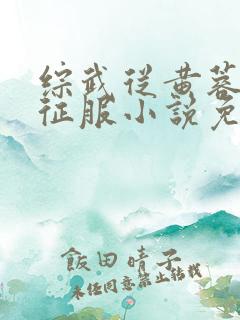 综武从黄蓉
征服小说免
飯田晴子
未经同意禁止转载